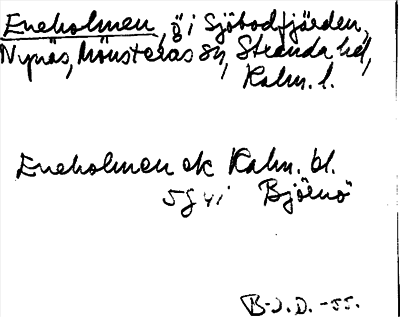 Eneholmen, ö i Sjöbodfjärden,
Nynäs, Mönsterås sn, Stranda hd,
Kalm. l.
Eneholmen ek Kalm. bl.
5g vi Björnö
B-J. D. -55.